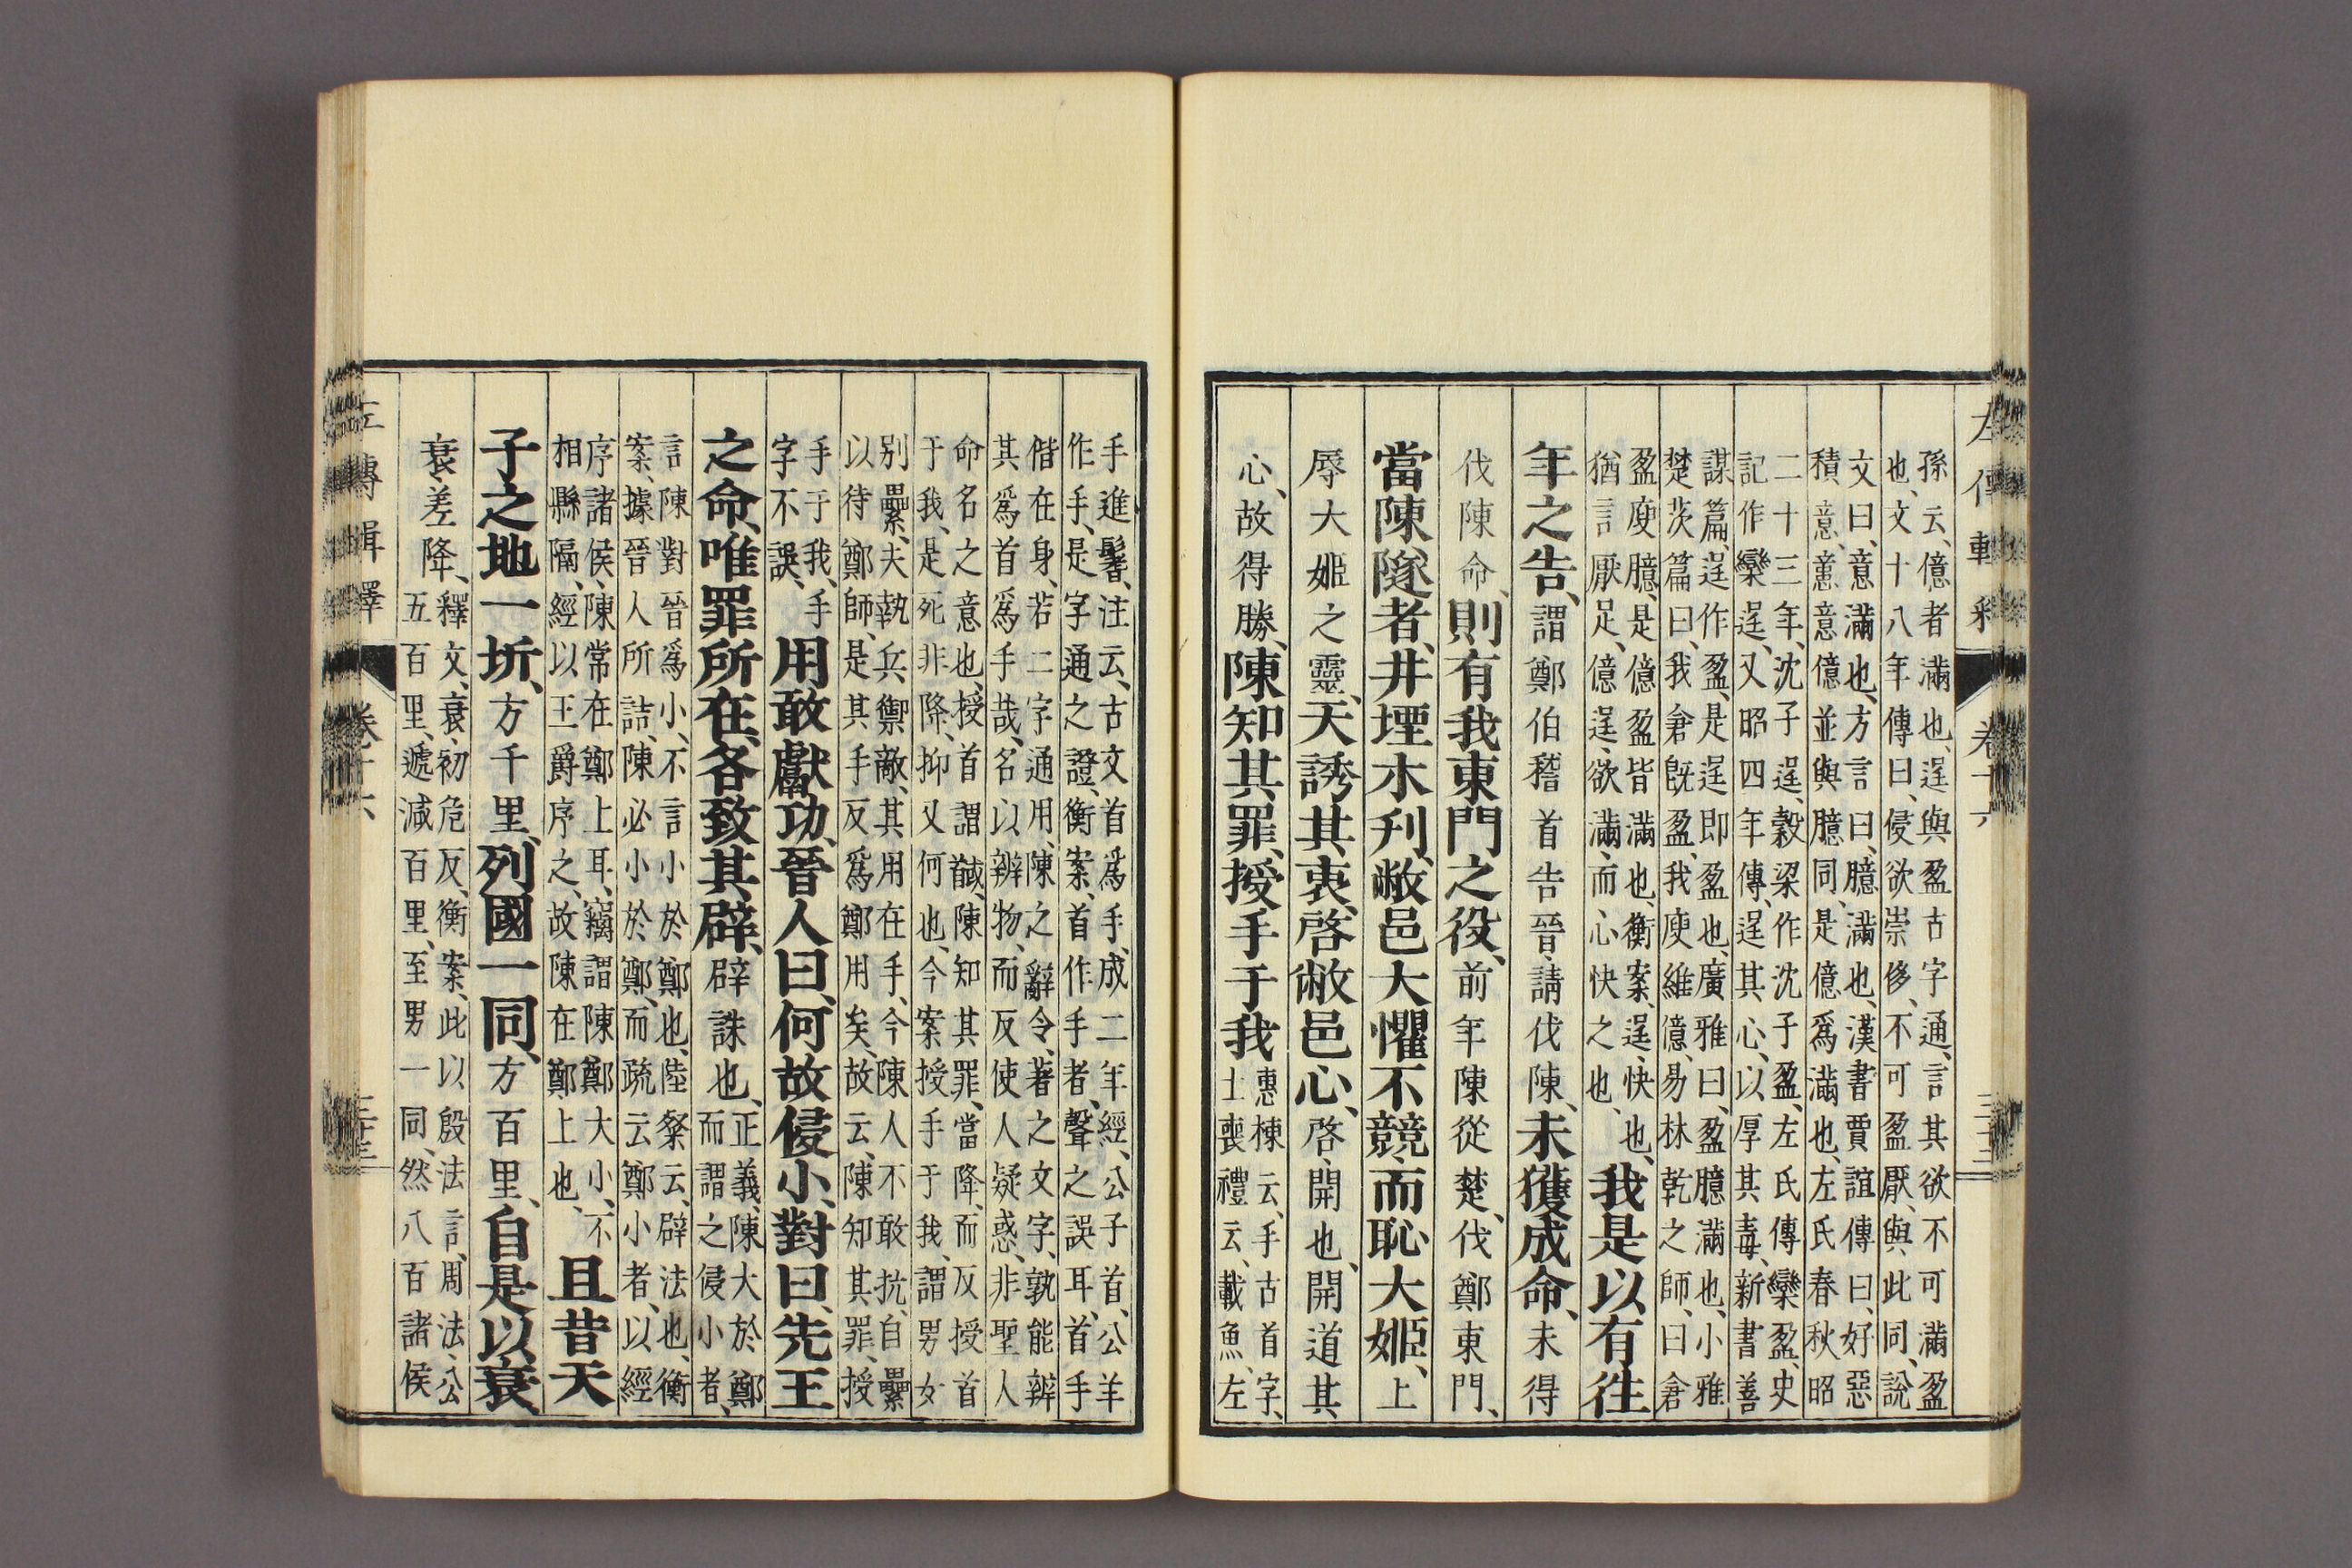 左傳輯釋 卷十六
孫云、億者滿也、逞與盈古字通、言其欲不可滿盈
也、文十八年傳曰、侵欲崇侈、不可盈厭、與此同、說
文曰、意滿也、方言曰、臆滿也、漢書賈誼傳曰、好惡
積意、意億並與臆同、是億爲滿也、左氏春秋昭
二十三年、沈子逞、穀梁作沈子盈、左氏傳欒盈、史
記作欒逞、又昭四年傳、逞其心、以厚其毒、新書善
謀篇、逞作盈、是逞即盈也、廣雅曰、盈臆滿也、小雅
楚茨篇曰、我倉旣盈、我庾維億、易林乾之師、曰倉
盈庾臆、是億盈皆滿也、衡案、逞、快也、
猶言厭足、億逞、欲滿、而心快之也、
我是以有往
年之告、謂鄭伯稽首告晉、請伐陳、未獲成命、未得
伐陳命、則有我東門之役、前年陳從楚、伐鄭東門、
當陳隧者、井堙木刊、敝邑大懼不競、而恥大姬、上
辱大姬之靈、天誘其衷、啓敝邑心、啓、開也、開道其
心、故得勝、陳知其罪、授手于我
惠棟云、手古首字、
士喪禮云、載魚、左
手進鬐、注云、古文首爲手、成二年經、公子首、公羊
作手、是字通之證、衡案、首作手者、聲之誤耳、首手
偕在身、若二字通用、陳之辭令、著之文字、孰能辨
其爲首爲手哉、名以辨物、而反使人疑惑、非聖人
命名之意也、授首謂馘、陳知其罪、當降、而反授首
于我、是死非降、抑又何也、今案授手于我、謂男女
別纍、夫執兵禦敵、其用在手、今陳人不敢抗、自纍
以待鄭師、是其手反爲鄭用矣、故云、陳知其罪、授
手于我、手
字不誤、
用敢獻功、晉人曰、何故侵小、對曰、先王
之命、唯罪所在、各致其辟、辟誅也、
正義、陳大於鄭
而謂之侵小者、
言陳對晉爲小、不言小於鄭也、陸粲云、辟法也、衡
案、據晉人所詰、陳必小於鄭、而疏云鄭小者、以經
序諸侯、陳常在鄭上耳、竊謂陳鄭大小、不
相縣隔、經以王爵序之、故陳在鄭上也、
且昔天
子之地一圻、方千里、列國一同、方百里、自是以衰、
衰、差降、
釋文、衰、初危反、衡案、此以殷法言、周法、公
五百里、遞減百里、至男一同、然八百諸侯
左傳輯釋 卷十六